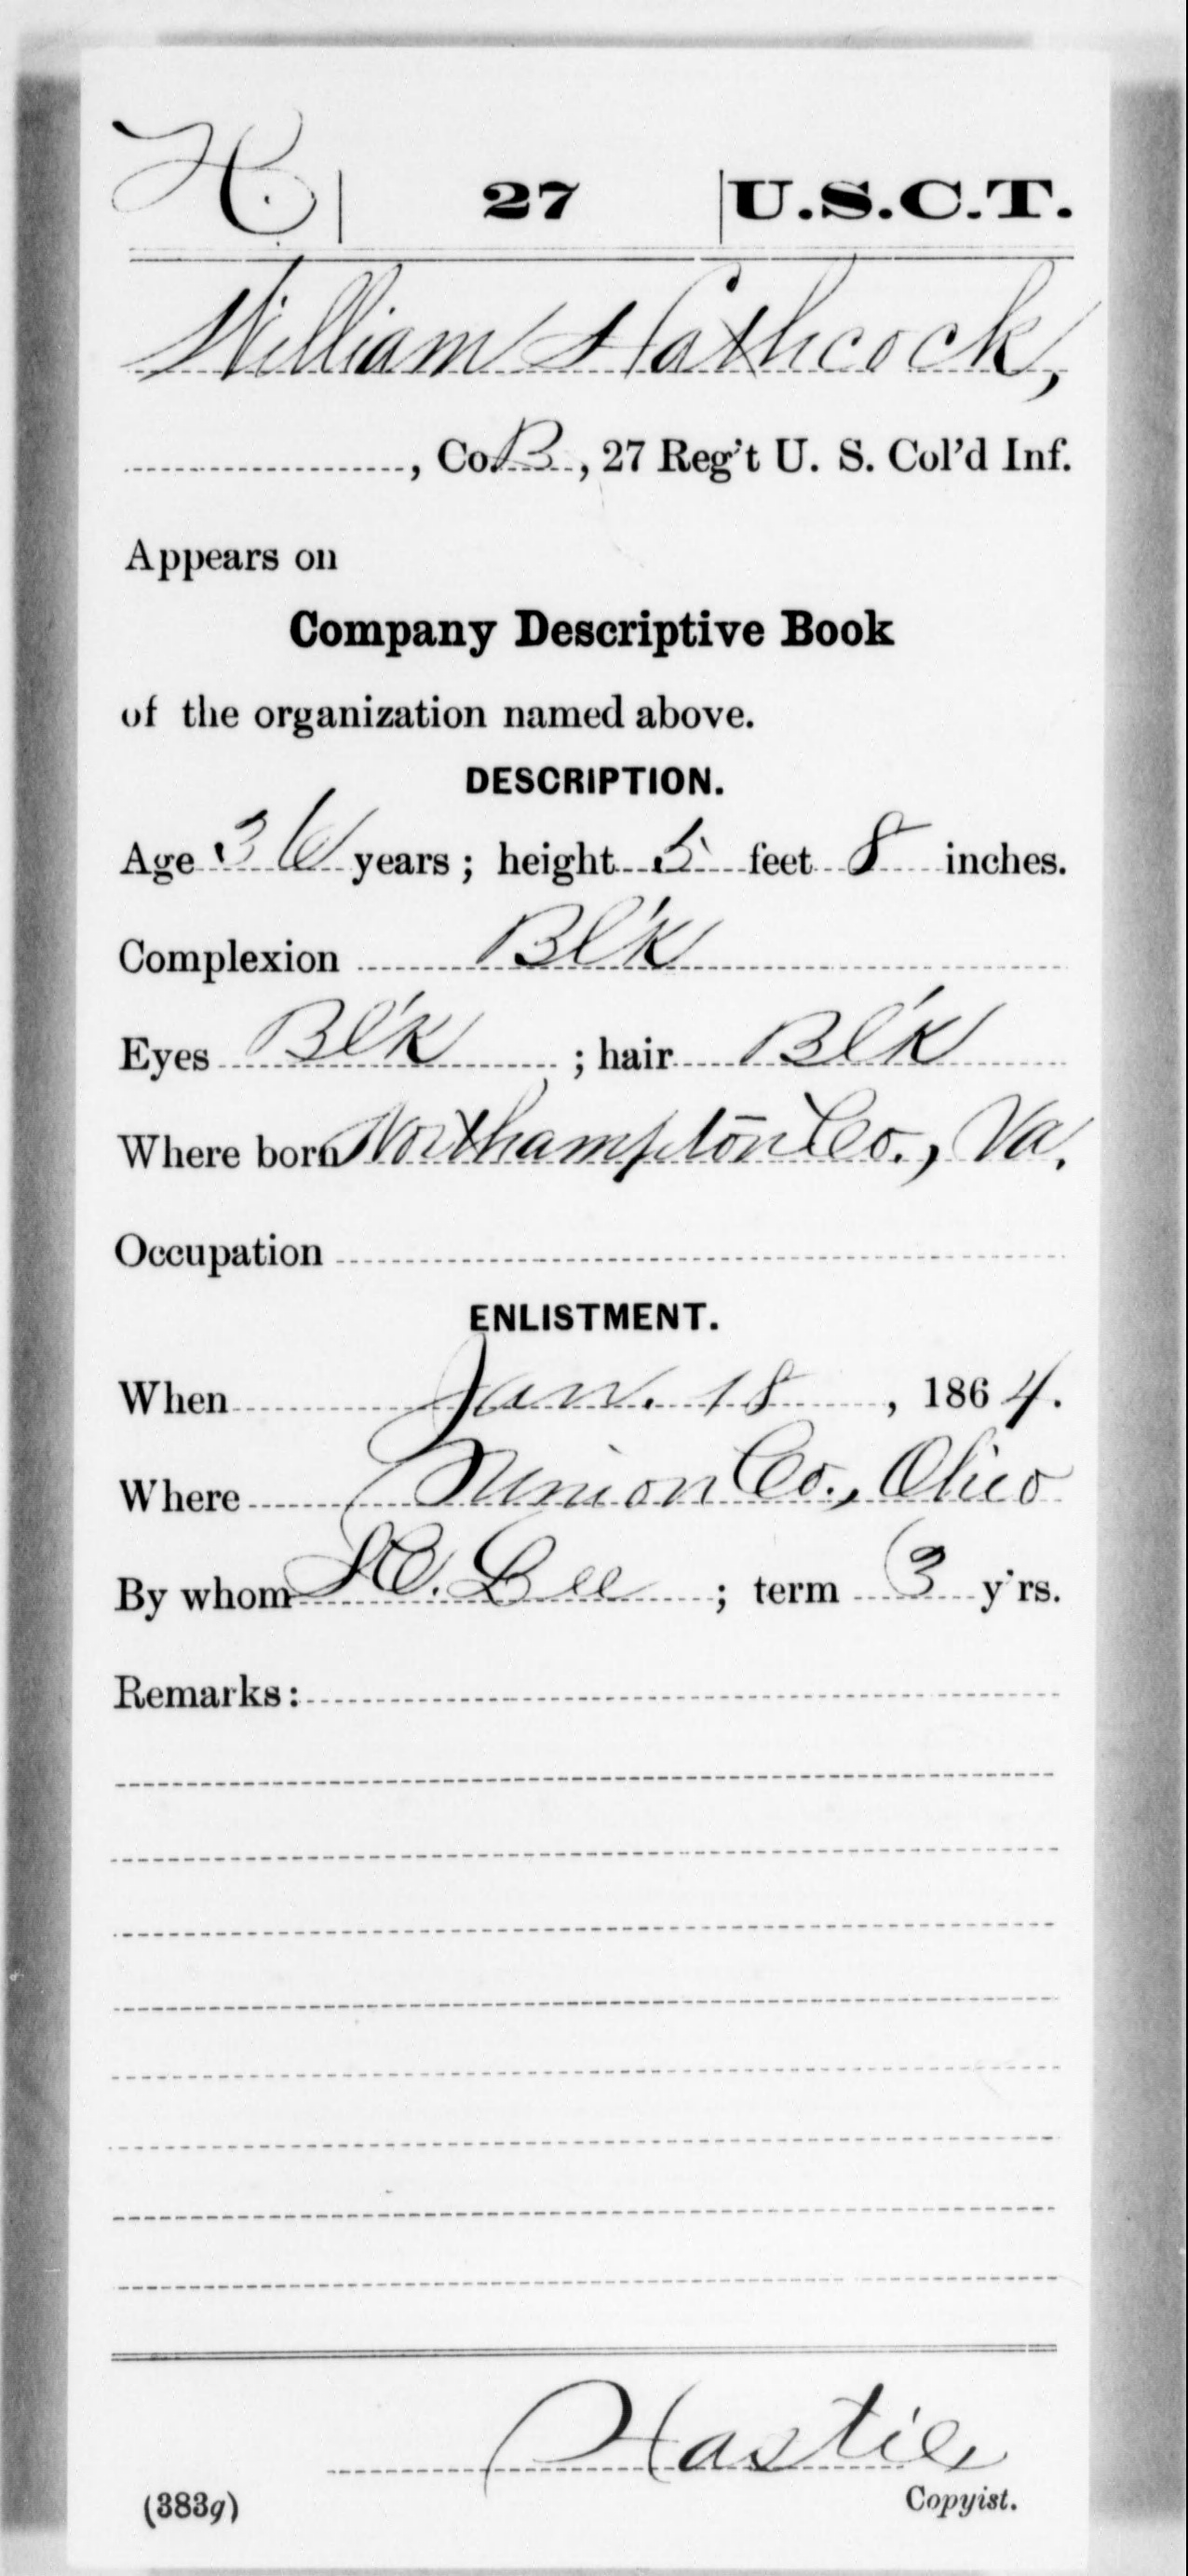 H. | 27 | U.S.C.T.
William Hathcock,
, Co. B, 27 Reg't U. S. Col'd Inf.
Appears on
Company Descriptive Book
of the organization named above.
DESCRIPTION.
Age 36 years; height 5 feet 8 inches.
Complexion Bl'k
Eyes Bl'k ; hair Bl'k
Where born Northampton Co., Va.
Occupation
ENLISTMENT.
When Jan. 18, 1864.
Where Union Co., Ohio
By whom Lee ; term 3 y'rs.
Remarks:
Hastie
(383g) Copyist.